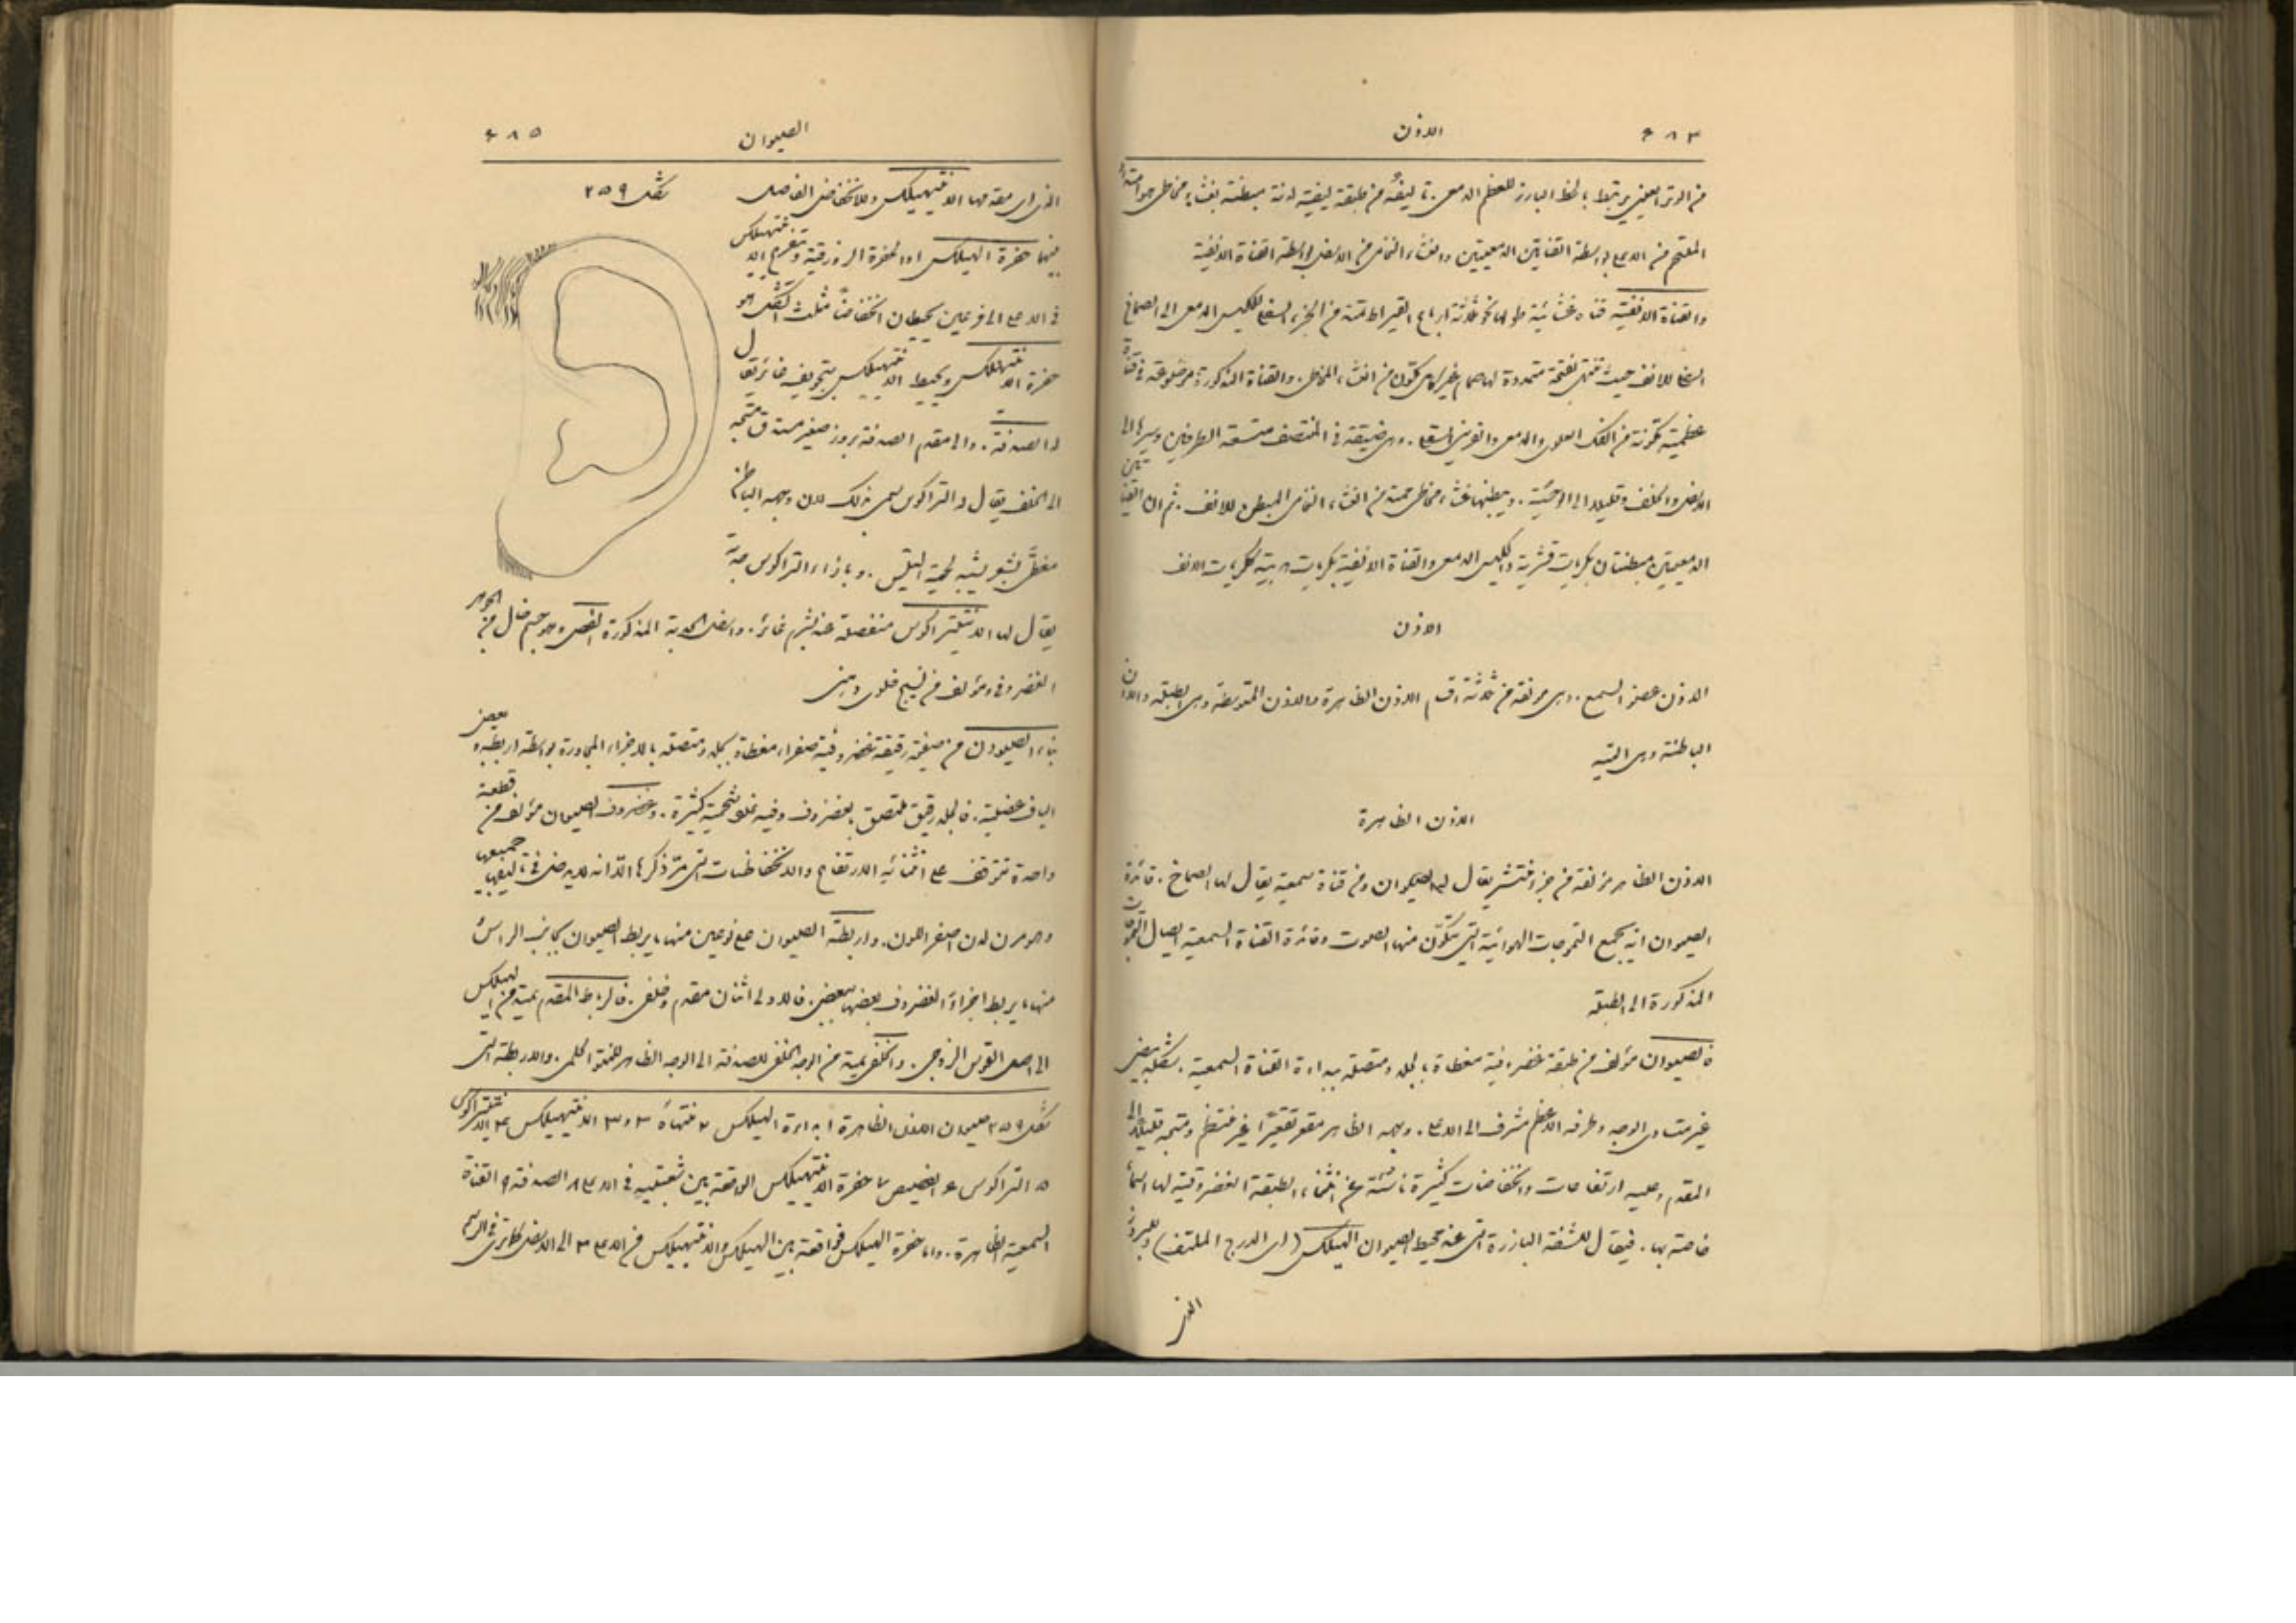 الاذن
من الوتر العيني يرتبط بالخط البارز للعظم الدمعي. تاليفه من طبقة ليفية لدنة مبطنة بغشاء مخاطي هو امتداد
الملتحم من الاعلى بواسطة القناتين الدمعيتين والغشاء النخامي من الاسفل بواسطة القناة الانفية
والقناة الانفية قناة غشائية طولها نحو ثلاثة ارباع القيراط تمتد من الجزء السفلي للكيس الدمعي الى الصماخ
السفلي للانف حيث تنتهي بفتحة متمددة لها صمام غير كامل يتكون من الغشاء المخاطي. والقناة المذكورة موضوعة في قناة
عظمية مكونة من الفك العلوي والدمعي والقرين السفلي. وهي ضيقة في المنتصف متسعة الطرفين وسيرها الى
الاسفل والخلف وقليلا الى الوحشية. ويبطنها غشاء مخاطي يمتد من الغشاء النخامي المبطن للانف. ثم ان القناتين
الدمعيتين مبطنتان بكريات قشرية والكيس الدمعي والقناة الانفية بكريات هدبية ككريات الانف
الاذن
الاذن عضو السمع. وهي مؤلفة من ثلاثة اقسام الاذن الظاهرة والاذن المتوسطة وهي الطبلة والاذن
الباطنة وهي التيه
الاذن الظاهرة
الاذن الظاهر مؤلفة من جزء منتشر يقال له الصيوان ومن قناة سمعية يقال لها الصماخ. فائدة
الصيوان انه يجمع التموجات الهوائية التي يتكون منها الصوت وفائدة القناة السمعية ايصال التموجات
المذكورة الى الطبلة
فالصيوان مؤلف من طبقة غضروفية مغطاة بالجلد ومتصلة ببداءة القناة السمعية. شكله بيضي
غير متساوي الوجه وطرفه الاعظم مشرف الى الاعلى. وجهه الظاهر مقعر تقعيرا غير منتظم ومتجه قليلا الى
المقدم وعليه ارتفاعات وانخفاضات كثيرة ناشئة عن انثناء الطبقة الغضروفية لها اسماء
خاصة بها. فيقال للشفة البارزة التي عند محيط الصيوان الهيلكس (اي الدرج الملتف) وللبروز
الذي
٤٨٥
الصيوان
شكل ٢٥٩
الذي الى مقدمها الانتيهيلكس وللانخفاض الفاصل
بينهما حفرة الهيلكس او الحفرة الزورقية وتنفرع الانتيهيلكس
في الاعلى الى فرعين يحيطان انخفاضا مثلث الشكل هو
حفرة الانتيهيلكس ويحيط الانتيهيلكس بتجويف غائر يقال
له الصدفة. والى مقدم الصدفة بروز صغير مستدق متجه
الى الخلف يقال له التراكوس سمي بذلك لان وجهه الباطن
مغطى بشعر يشبه لحية التيس. وبازاء التراكوس حدبة
يقال لها الانتيتراكوس منفصلة عنه بشرم غائر. واسفل الحدبة المذكورة الفصيص وهو جسم خال من الجوهر
الغضروفي ومؤلف من نسيج خلوي دهني
بناء الصيوان من صفيحة رقيقة غضروفية صفراء مغطاة بجلد ومتصلة بالاجزاء المجاورة بواسطة اربطة وبعض
الياف عضلية. فالجلد رقيق ملتصق بالغضروف وفيه غدد شحمية كثيرة. وغضروف الصيوان مؤلف من قطعة
واحدة تتوقف على انثنائه الارتفاع والانخفاضات التي مر ذكرها الا انه لا يدخل في تاليف جميعها
وهو مرن لدن اصفر اللون. واربطة الصيوان على نوعين منها ما يربط الصيوان بجانب الراس
منها ما يربط اجزاء الغضروف بعضها ببعض. فالاولى اثنان مقدم وخلفي. فالرباط المقدم يمتد من الهيلكس
الى اصل القوس الزوجي. والخلفي يمتد من الوجه الخلفي للصدفة الى الوجه الظاهر للنتوء الحلمي. والاربطة التي
شكل ٢٥٩ صيوان الاذن الظاهرة ١ بداءة الهيلكس ٢ منتهاه ٣ و٣ الانتيهيلكس ٤ الانتيتراكوس
٥ التراكوس ٦ الفصيص ٧ حفرة الانتيهيلكس الواقعة بين شعبتيه في الاعلى ٨ الصدفة ٩ القناة
السمعية الظاهرة. واما حفرة الهيلكس فواقعة بين الهيلكس والانتيهيلكس من الاعلى ٣ الى الاسفل كما ترى في الرسم